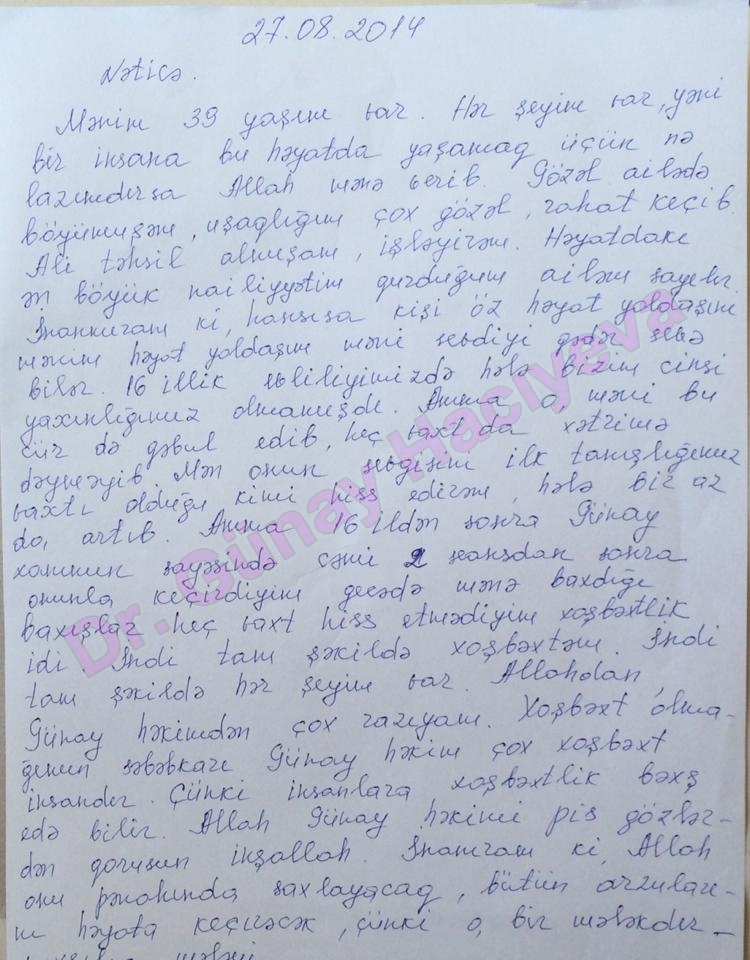 27.08.2014
Nəticə.
Mənim 39 yaşım var. Hər şeyim var, yəni
bir insana bu həyatda yaşamaq üçün nə
lazımdırsa Allah mənə verib. Gözəl ailədə
böyümüşəm, uşaqlığım çox gözəl, rahat keçib.
Ali təhsil almışam, işləyirəm. Həyatdakı
ən böyük nailiyyətim qurduğum ailəm sayılır.
İnanmıram ki, hansısa kişi öz həyat yoldaşını
mənim həyat yoldaşım məni sevdiyi qədər sevə
bilər. 16 illik evliliyimizdə hələ bizim cinsi
yaxınlığımız olmamışdı. Amma o, məni bu
cür də qəbul edib, heç vaxt da xətrimə
dəyməyib. Mən onun sevgisini ilk tanışlığımız
vaxtı olduğu kimi hiss edirəm, hələ bir az
da, artıb. Amma 16 ildən sonra Günay
xanımın sayəsində cəmi 2 seansdan sonra
onunla keçirdiyim gecədə mənə baxdığı
baxışlar heç vaxt hiss etmədiyim xoşbəxtlik
idi. İndi tam şəkildə xoşbəxtəm. İndi
tam şəkildə hər şeyim var. Allahdan,
Günay həkimdən çox razıyam. Xoşbəxt olma-
ğımın səbəbkarı Günay həkim çox xoşbəxt
insandır. Çünki insanlara xoşbəxtlik bəxş
edə bilir. Allah Günay həkimi pis gözlər-
dən qorusun inşallah. İnanıram ki, Allah
onu pənahında saxlayacaq, bütün arzuları-
nı həyata keçirəcək, çünki o, bir mələkdir –
Dr. Günay Hacıyeva